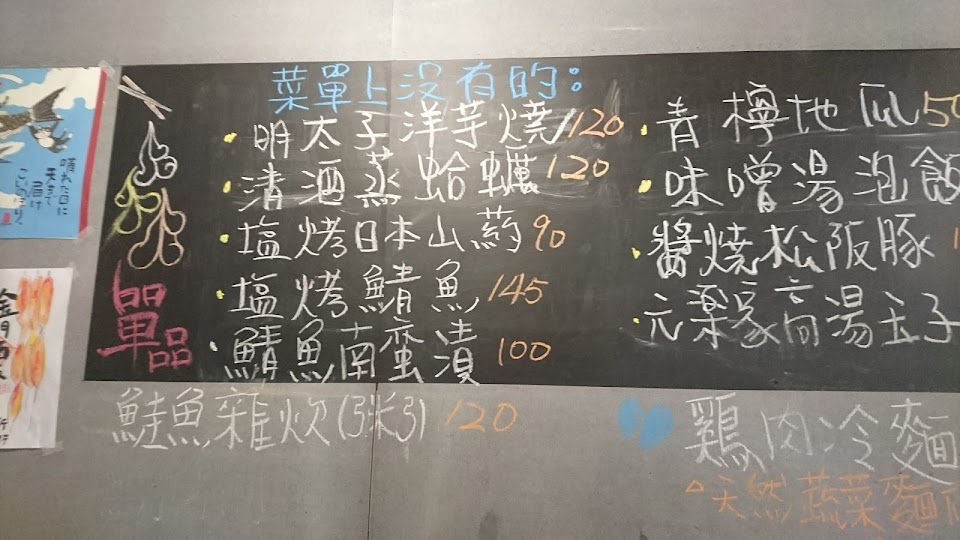 菜單上沒有的:
單品
明太子洋芋燒 120
清酒蒸蛤蠣 120
塩烤日本山葯 90
塩烤鯖魚 145
鯖魚南蛮漬 100
青檸地瓜 50
味噌湯泡飯
醬燒松阪豚 1
元楽家高湯玉子
鮭魚雜炊(粥) 120
鶏肉冷麵
△天然蔬菜麵
晴れた日に
天まで
届け